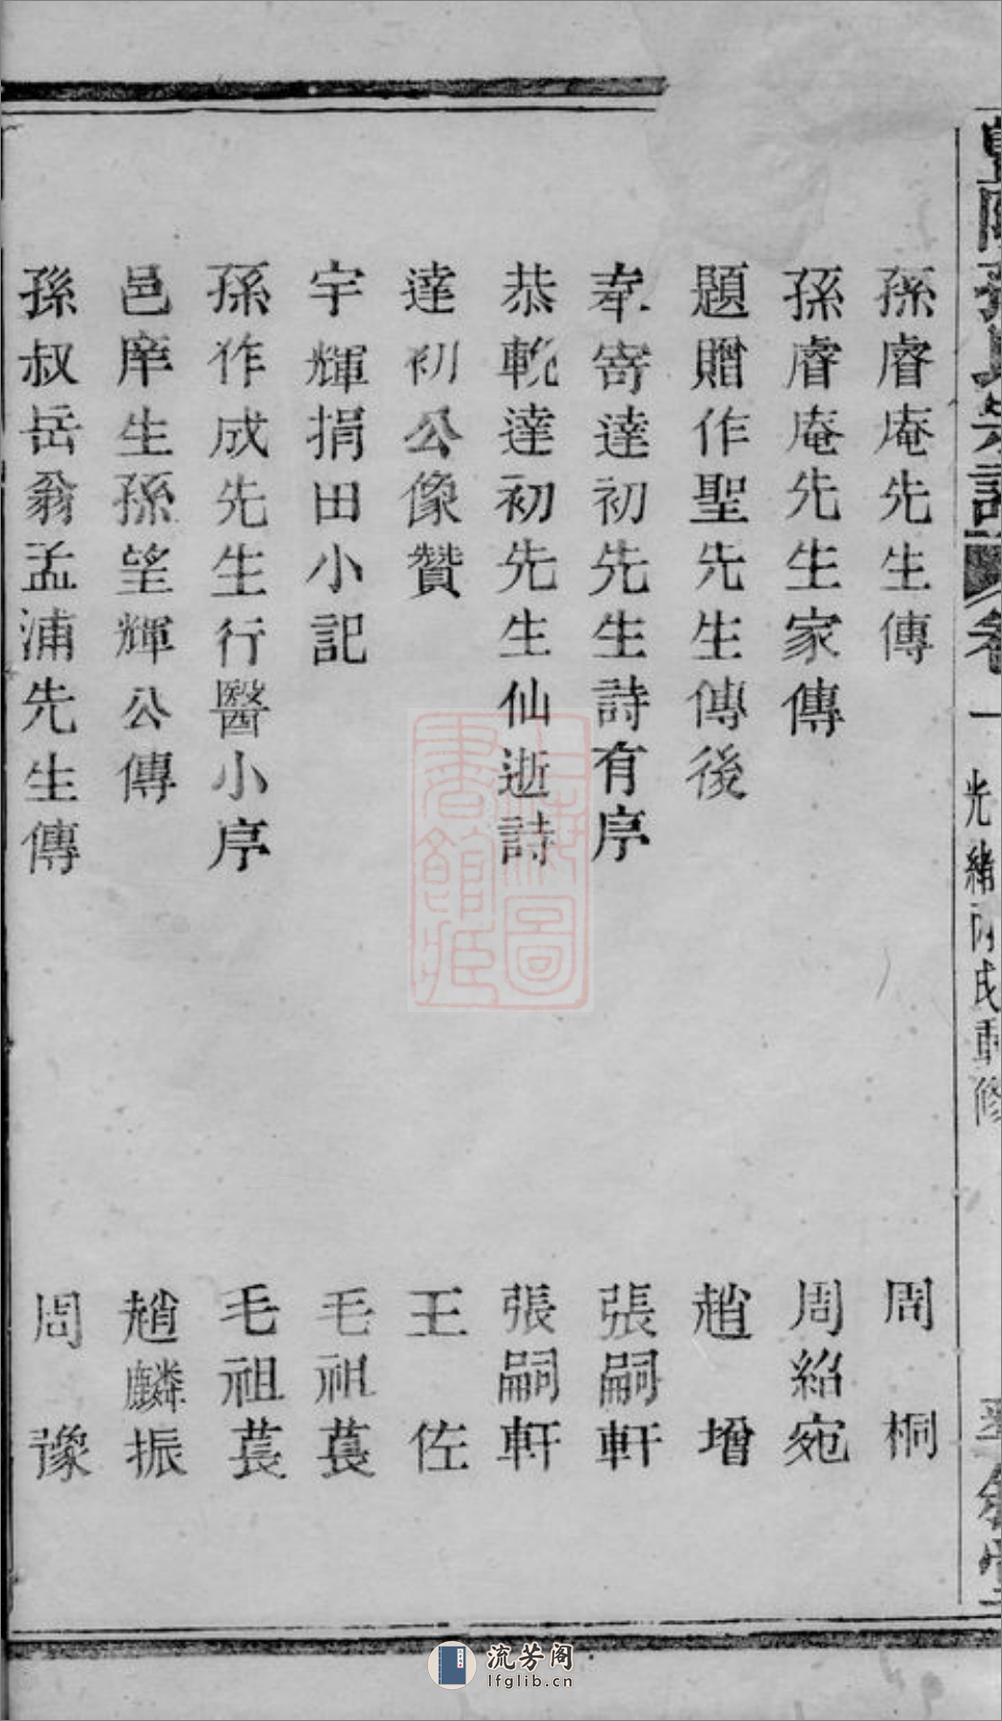 孫睿庵先生傳 周桐
孫睿庵先生家傳 周紹宛
題贈作聖先生傳後 趙增
奉寄達初先生詩有序 張嗣軒
恭輓達初先生仙逝詩 張嗣軒
達初公像贊 王佐
宇輝捐田小記 毛祖萇
孫作成先生行醫小序 毛祖萇
邑庠生孫望輝公傳 趙麟振
孫叔岳翁孟浦先生傳 周豫
卷一 光緒丙戌重修
上海圖書館藏
流芳阁
lfglib.cn